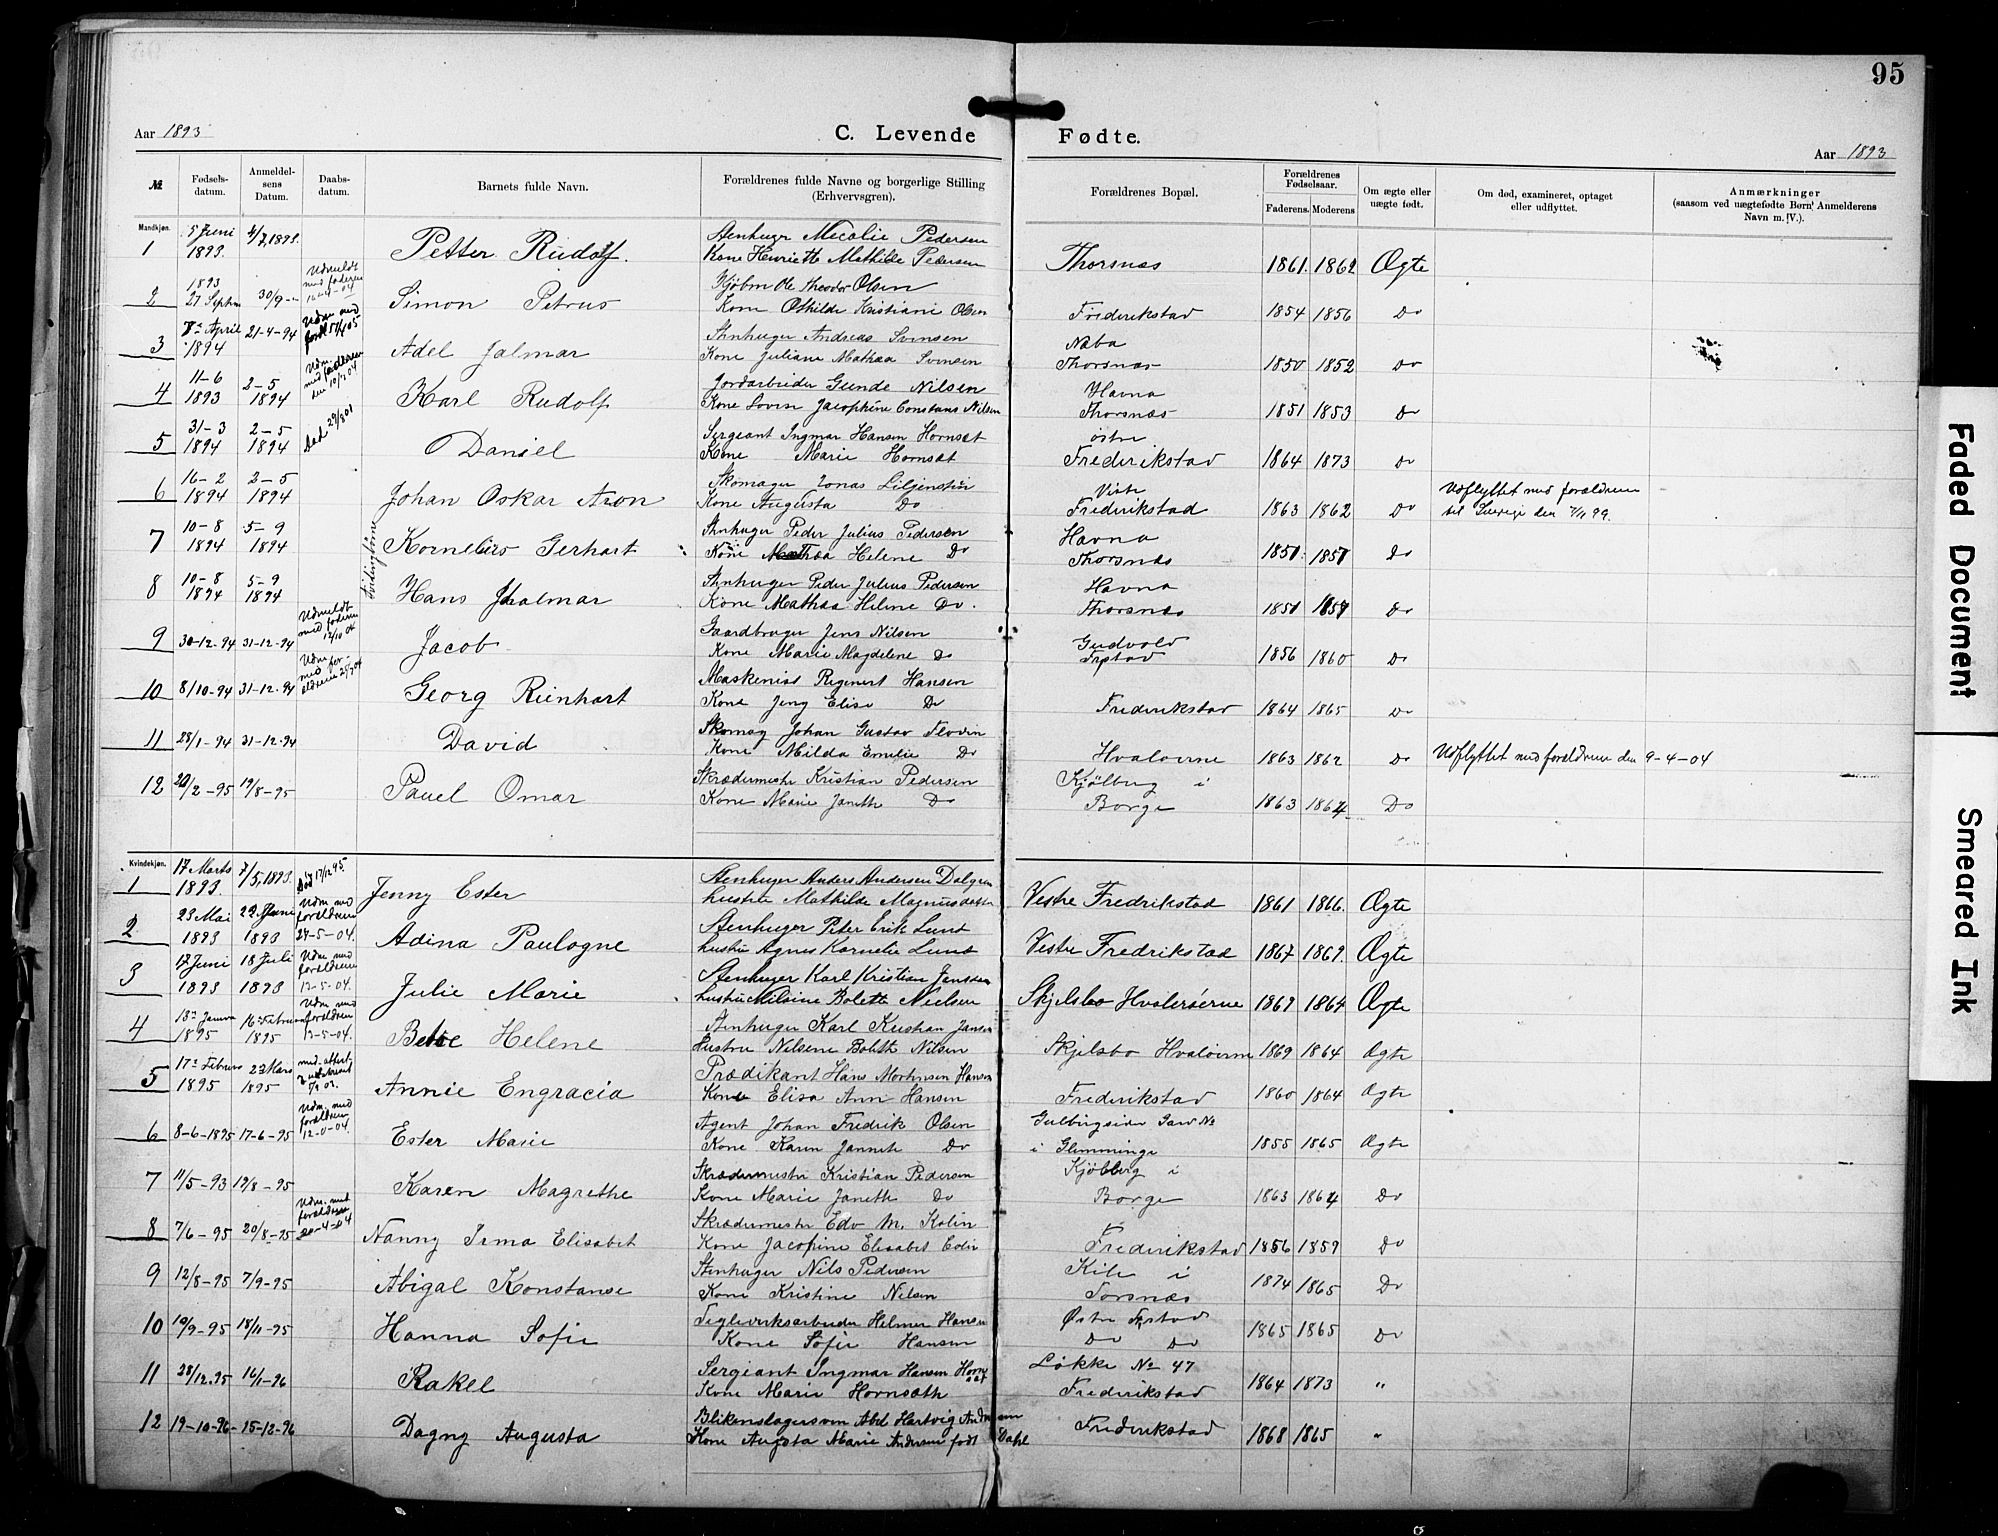 95
Aar 1893
C. Levende Fødte.
Aar 1893
№
Fødsels-datum.
Anmeldel-sens Datum.
Daabs-datum.
Barnets fulde Navn.
Forældrenes fulde Navne og borgerlige Stilling
(Erhvervsgren).
Forældrenes Bopæl.
Forældrenes Fødselsaar.
Faderens.
Moderens
Om ægte eller uægte født.
Om død, examineret, optaget eller udflyttet.
Anmærkninger
(saasom ved uægtefødte Børn Anmelderens Navn m. V.).
Mandkjøn.
1 5 Juni 1893. 4/7, 1893. Petter Rudolf. Stenhuger Pedersen
Kone Henriette Mathilde Pedersen Thorsnæs 1861. 1862 Ægte
2 1893 27 Septm 30/9 Udmeldt med faderen Simon Petrus Ole Theodor Olsen
Kone Othilde Kristiane Olsen Frederikstad 1854 1856 Do
3 April 1894 21-4-94 Adel Jalmar Stnhuger Andreas Svensen
Kone Juliane Mathea Svensen Thorsnæs 1850 1852 Do
4 11-6 1893 2-5 1894 Karl Rudolf Jordarbeider Gunde Nilsen
Kone Lovise Jacophine Constans Nilsen Havna Thorsnæs 1851 1853 Do
5 31-3 1894 2-5 1894 Død Daniel Sergeant Ingmar Hansen Hornsæt
Kone Marie Hornsæt østre Frederikstad 1864 1873 Do
6 16-2 1894 2-5 1894 Johan Oskar Aron Skomager Jonas Liljenstün
Kone Augusta Do Vestr Frederikstad 1863 1862 Do Udflyttet med forældrene
til Sverige den 7/11 99.
Tvillingbörn
7 10-8 1894 5-9 1894 Kornelius Gerhart Stnhuger Peder Julius Pedersen
Kone Mathea Helene Do Havna Thorsnæs 1851. 1851 Do
8 10-8 1894 5-9 1894 Hans Jalmar Stenhuger Peder Julius Pedersen
Kone Mathea Helene Do. Havna Thorsnæs 1851 1851 Do
9 30-12-94 31-12-94 Udmeldt med faderen Jacob Gaardbruger Jens Nilsen
Kone Marie Magdelene Do 1856 1860 Do
10 8/10-94 31-12-94 Georg Reinhart Maskenist Reginert Hansen
Kone Jeny Elise Do Frederikstad 1864 1865 Do
11 28/1-94 31-12-94 David Skomag Johan Gustav Flodin
Kone Milda Emelie Do Hvaloerne 1863 1862 Do Udflyttet med forældrene den 9-4-04
12 20/2-95 19/8-95 Pauel Omar Skrædermester Kristian Pedersen
Kone Marie Janette Do Kjölberg i Borge 1863 1864 Do
Kvindekjøn.
1 17 Marts 1893. 7/5, 1893. Død 17/12 95. Jenny Ester Stenhuger Anders Andersen Dalgren
hustru Mathilde Magnusdatter Vestre Fredrikstad 1861 1866. Ægte
2 23 Mai 1893 22 Juni 1893 Udm. med forældrene 24-5-04. Adina Paulogne Stenhuger Peter Erik Lund
hustru Agnes Kornelie Lund Vestre Fredrikstad 1867 1869. Ægte
3 17 Juni 1893 18 Juli 1893 Udm med forældrene 12-5-04. Julie Marie Stenhuger Karl Kristian Janssen
hustru Nilsine Bolette Nielsen Skjelsbo Hvalerøerne 1869 1864 Ægte
4 1895 16 Februa 1895 Udm med forældrene 12-5-04. Betsie Helene Stenhuger Karl Kristian Jansen
Hustru Nilsene Bolette Nilsen Skjelsbo Hvaloerne 1869 1864 Ægte
5 17 Februar 1895 23 Mars 1895 Annie Engracia Prædikant Hans Mortinsen Hansen
Kone Elisa Ann Hansen Frederikstad 1860 1864 Ægte
6 8-6-1895 17-6-95 Udm. med forældrene Ester Marie Agent Johan Fredrik Olsen
Kone Karen Janneth Do i Glimminge 1855 1865 Ægte
7 11/5-93 19/8-95 Karen Magrethe Skrædermestr Kristian Pedersen
Kone Marie Janeth Do Kjölberg i Borge 1863 1864 Do
8 7/6-95 20/8-95 Udm. med forældrene 20-4-04 Nanny Irma Elisabet Skrædermester Edv M. Kolin
Kone Jacopine Elisabet Frederikstad 1856 1859 Do
9 12/8-95 7/9-95 Abigal Konstanse Stenhuger Nils Pedersen
Kone Kristine Nilsen Kile i Torsnæs 1874 1865 Do
10 19/9-95 18/11-95 Hanna Sofie Teglverksarbeider Helmer Hansen
Kone Sofie Hansen Østre Fstad Do Do 1865 1865 Do
11 28/12.95 16/1-96 Rakel Sergeant Ingmar Hansen Hornsæt
Kone Marie Hornsæth Løkke No 47 Frederikstad 1864 1873 "
12 19-10-96 15-12-96 Dagny Augusta Blikenslagersven Abel Hartvig Andersen
Kone Augsta Marie Andersen født Dahl Frederikstad 1868 1865 "
Faded Document
Smeared Ink